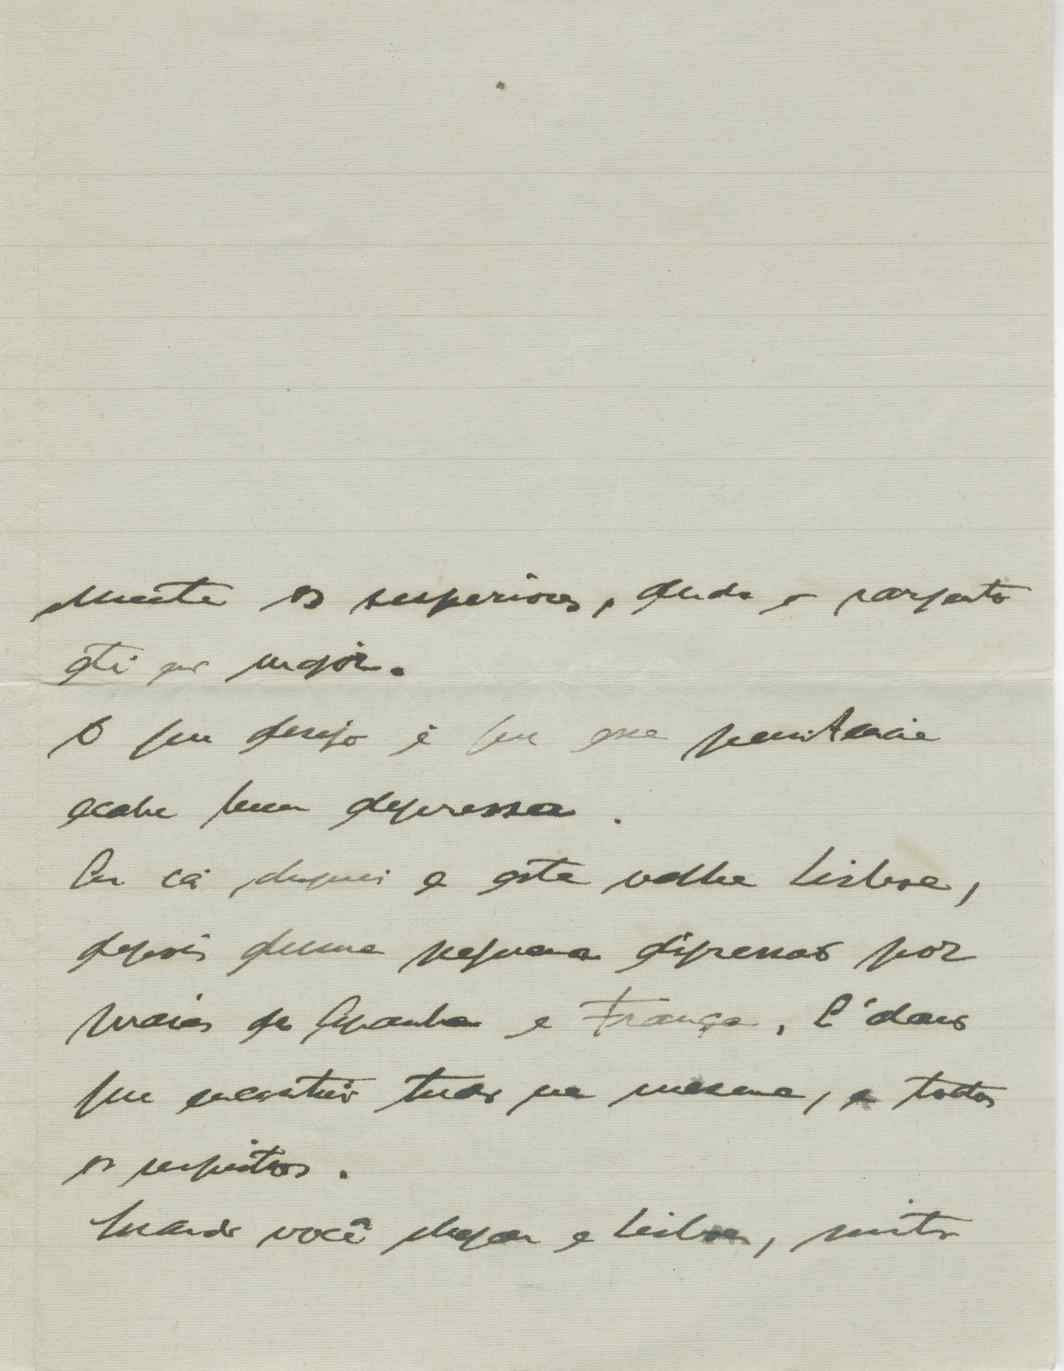 mente os superiores, desde o sargento
até ao major.
O que desejo é que essa penitencia
acabe bem depressa.
Eu cá cheguei a esta velha Lisboa,
depois duma pequena digressão por
praias de Espanha e França. E' claro
que encontrei tudo na mesma, e todos
os respeitos.
Quando você chegar a Lisboa, muito